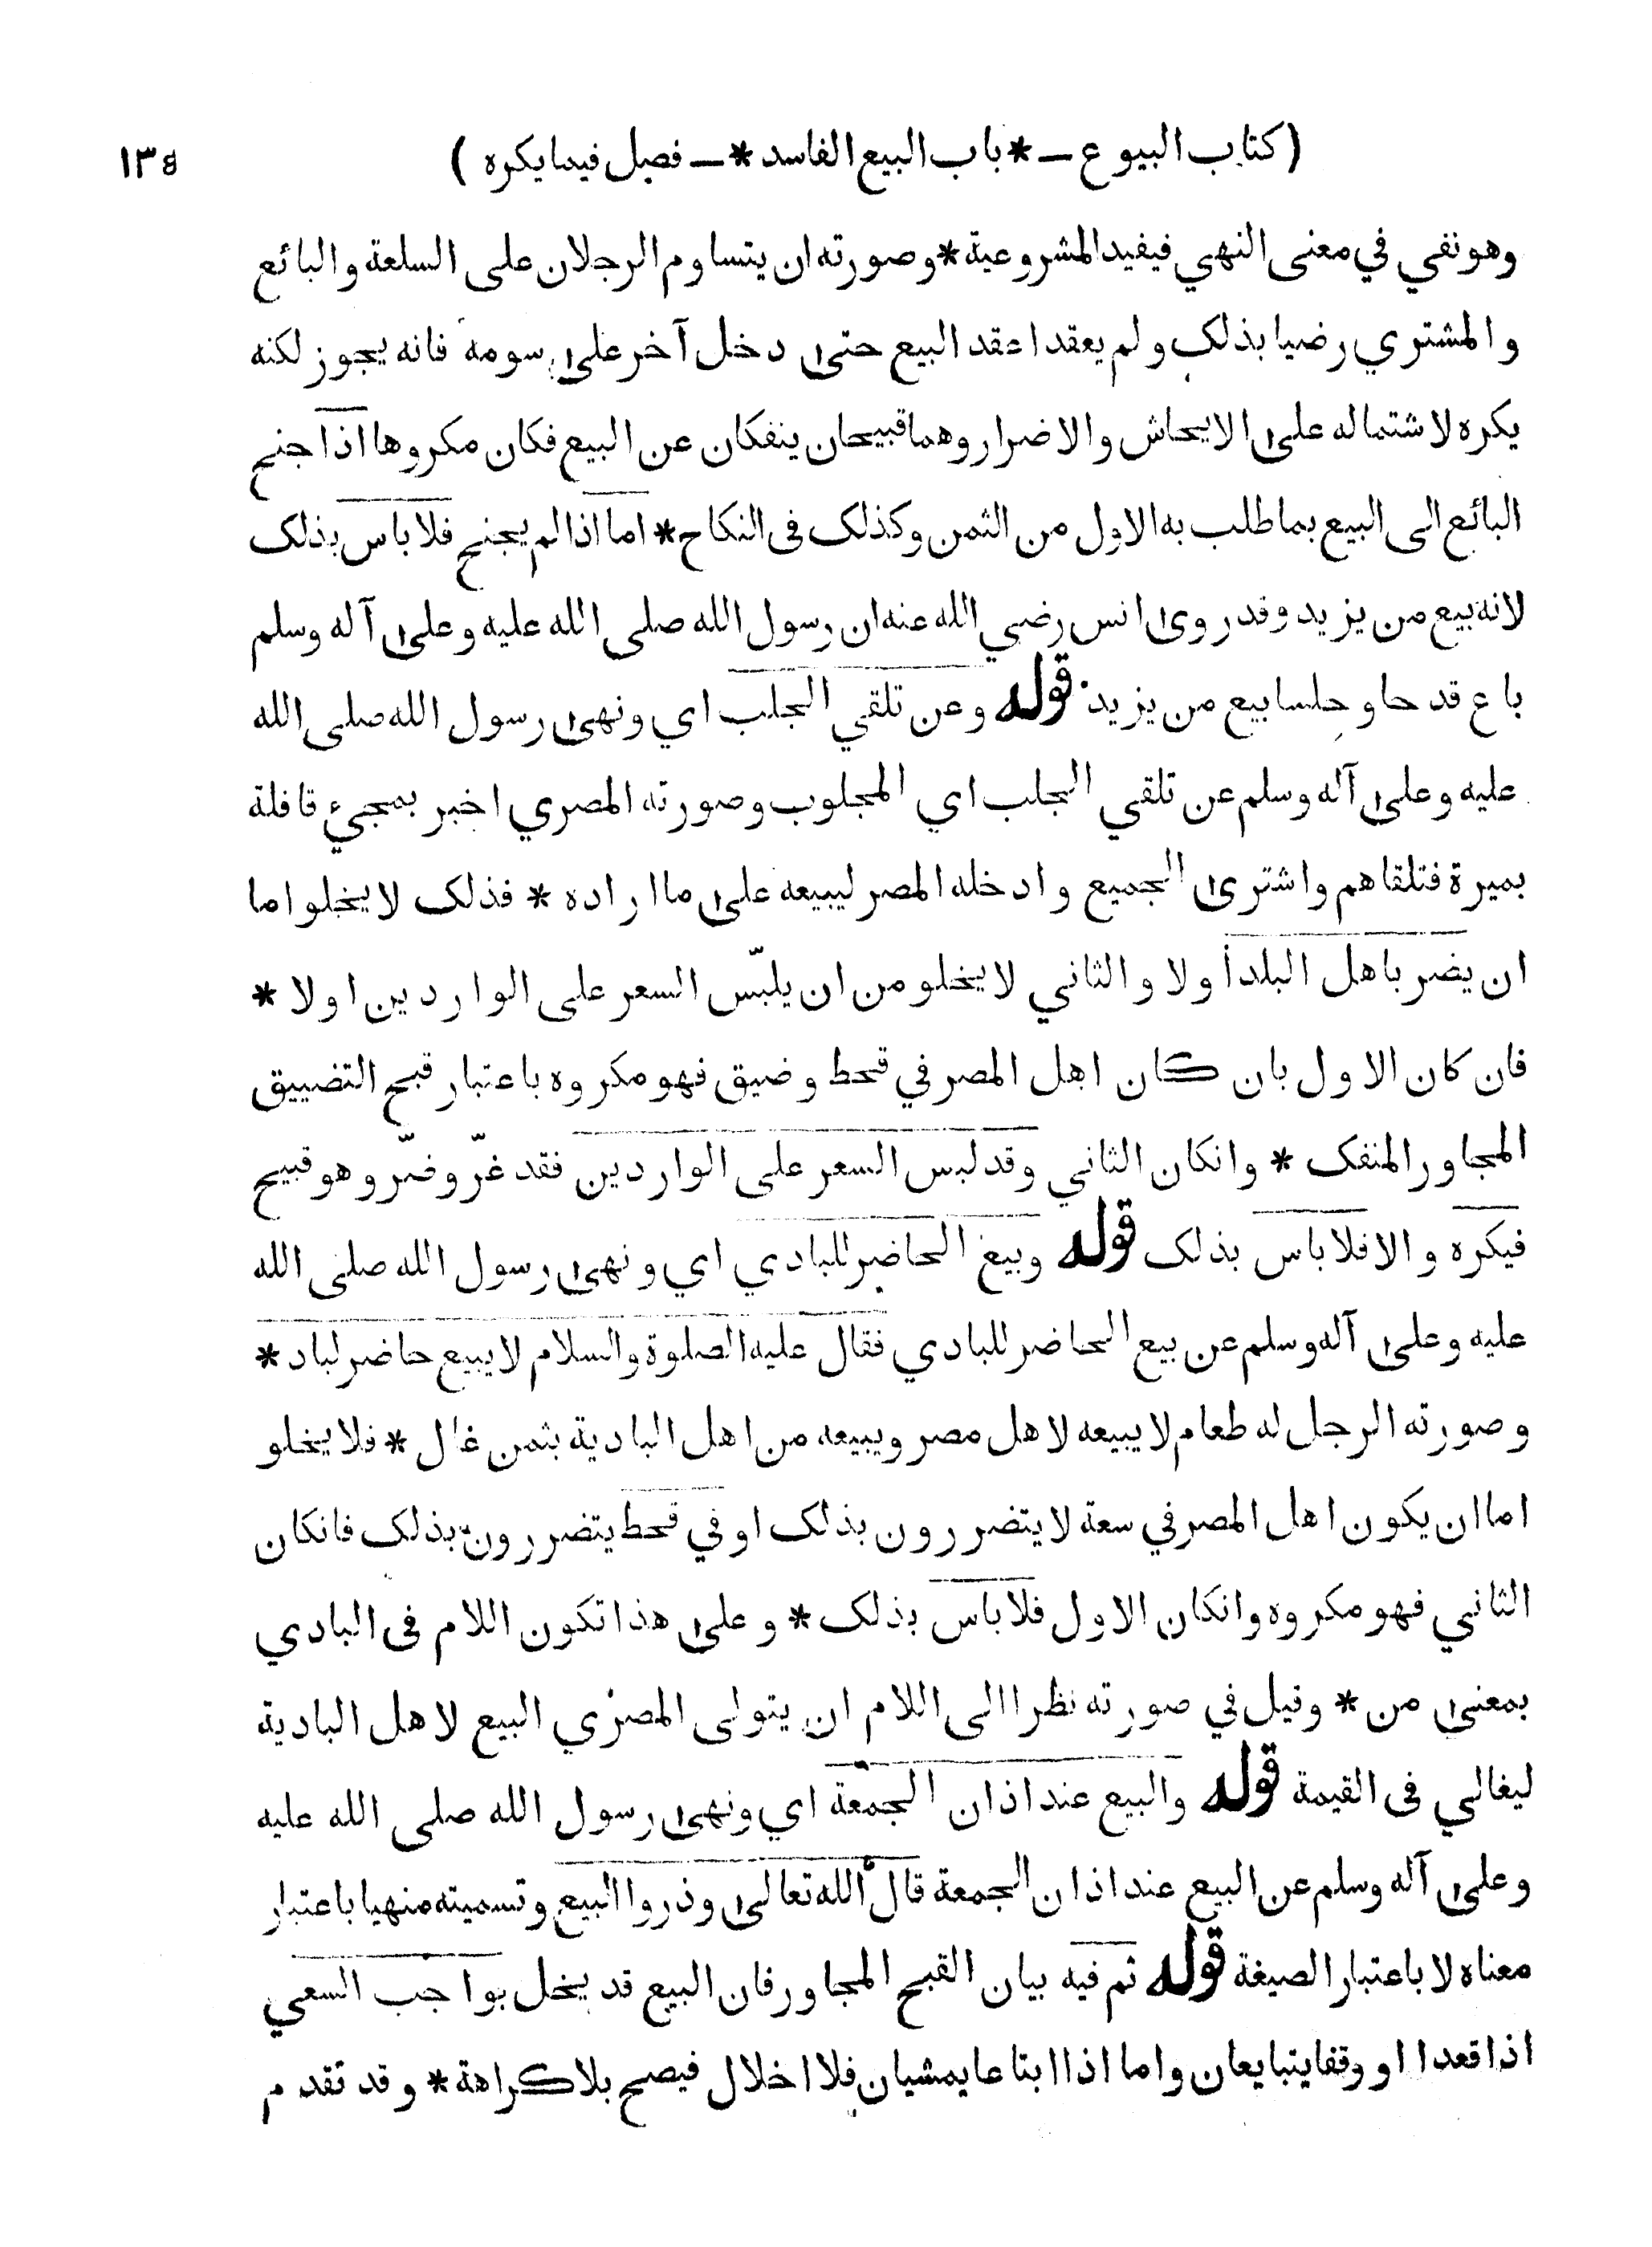 (كتاب البيوع ــ * باب البيع الفاسد * ــ فصل فيما يكره)
١٣٤
وهو نفي في معنى النهي فيفيد المشروعية * وصورته ان يتساوم الرجلان على السلعة والبائع
والمشتري رضيا بذلک ولم يعقدا عقد البيع حتى دخل آخر على سومه فانه يجوز لكنه
يكره لاشتماله على الايحاش والاضرار وهما قبيحان ينفكان عن البيع فكان مكروها اذا جنح
البائع الى البيع بما طلب به الاول من الثمن وكذلک فى النكاح * اما اذا لم يجنح فلا باس بذلک
لانه بيع من يزيد وقد روى انس رضي الله عنه ان رسول الله صلى الله عليه وعلى آله وسلم
باع قدحا وحلسا بيع من يزيد قوله وعن تلقي الجلب اي ونهى رسول الله صلى الله
عليه وعلى آله وسلم عن تلقي الجلب اي المجلوب وصورته المصري اخبر بمجيء قافلة
بميرة فتلقاهم واشترى الجميع وادخله المصر ليبيعه على ما اراده * فذلک لا يخلو اما
ان يضر باهل البلد أولا والثاني لا يخلو من ان يلبّس السعر على الواردين اولا *
فان كان الاول بان كان اهل المصر في قحط وضيق فهو مكروه باعتبار قبح التضييق
المجاور المنفک * وانكان الثاني وقد لبس السعر على الواردين فقد غرّ وضرّ وهو قبيح
فيكره والا فلا باس بذلک قوله وبيع الحاضر للبادي اي ونهى رسول الله صلى الله
عليه وعلى آله وسلم عن بيع الحاضر للبادي فقال عليه الصلوة والسلام لا يبيع حاضر لباد *
وصورته الرجل له طعام لا يبيعه لاهل مصر ويبيعه من اهل البادية بثمن غال * فلا يخلو
اما ان يكون اهل المصر في سعة لا يتضررون بذلک او في قحط يتضررون بذلک فانكان
الثاني فهو مكروه وانكان الاول فلا باس بذلک * وعلى هذا تكون اللام فى البادي
بمعنى من * وقيل في صورته نظرا الى اللام ان يتولى المصري البيع لاهل البادية
ليغالي فى القيمة قوله والبيع عند اذان الجمعة اي ونهى رسول الله صلى الله عليه
وعلى آله وسلم عن البيع عند اذان الجمعة قال الله تعالى وذروا البيع وتسميته منهيا باعتبار
معناه لا باعتبار الصيغة قوله ثم فيه بيان القبح المجاور فان البيع قد يخل بواجب السعي
اذا قعدا او وقفا يتبايعان واما اذا ابتاعا يمشيان فلا اخلال فيصح بلا كراهة * وقد تقدم